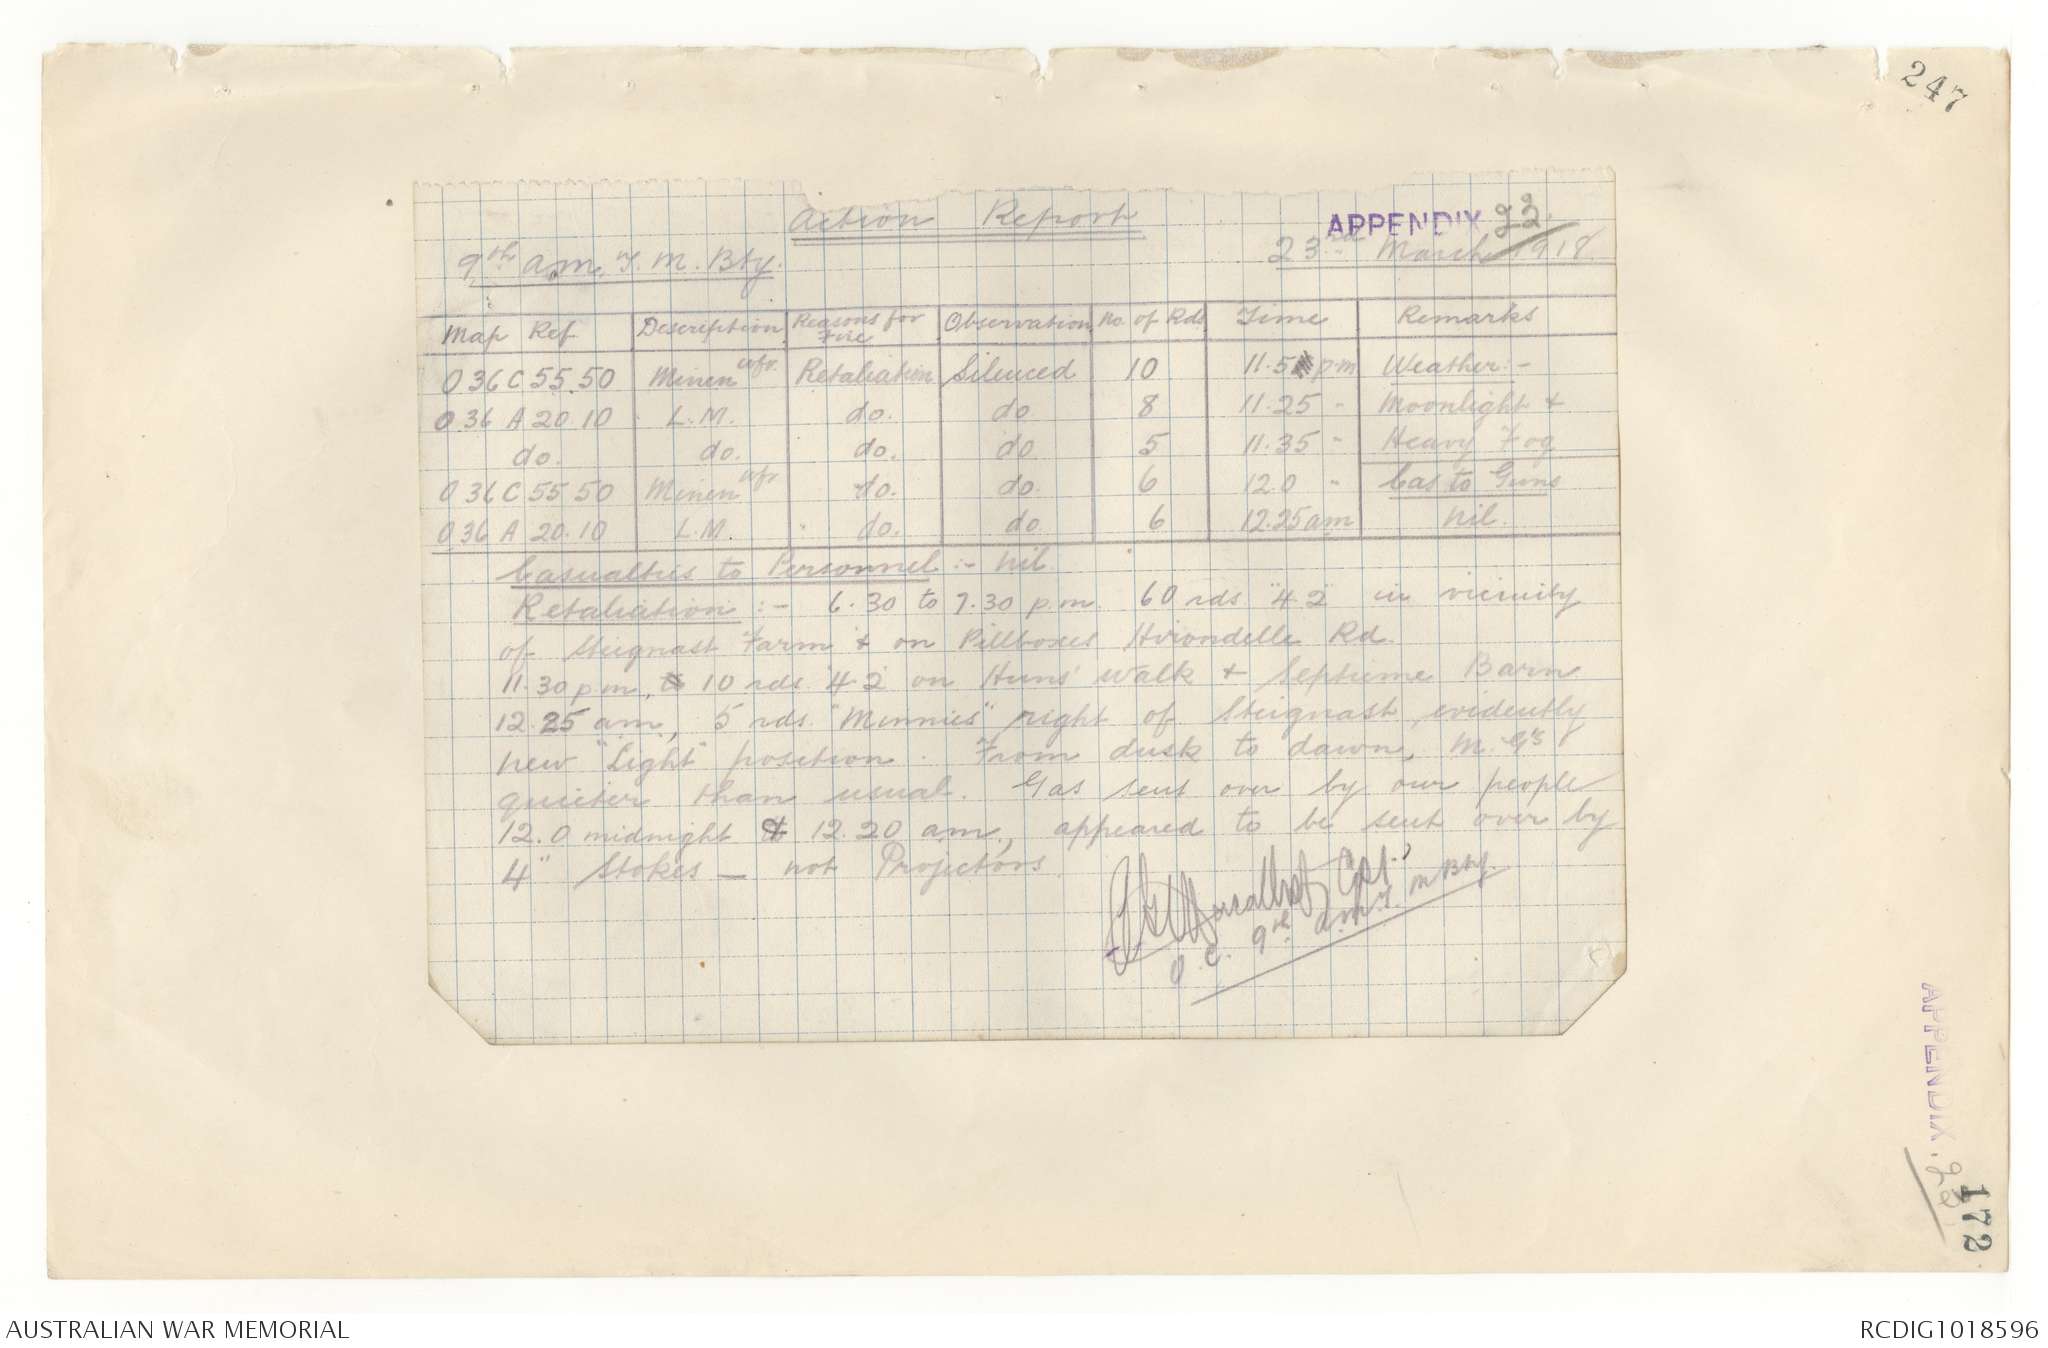 247
Action Report
APPENDIX g2.
9th A.M. T. M. Bty.
23rd March 1918.
Map Ref | Description | Reasons for Fire | Observation | No. of Rds | Time | Remarks
O 36 C 55.50 | Minenwfr. | Retaliation | Silenced | 10 | 11.5 p.m | Weather :-
O 36 A 20.10 | L.M. | do. | do | 8 | 11.25 " | Moonlight &
do. | do. | do. | do | 5 | 11.35 " | Heavy Fog
O 36 C 55.50 | Minenwfr | do. | do. | 6 | 12.0 " | Cas. to Guns
O 36 A 20.10 | L.M. | do. | do | 6 | 12.25 am | Nil.
Casualties to Personnel :- Nil.
Retaliation :- 6.30 to 7.30 p.m. 60 rds. "4.2" in vicinity
of Steignast Farm & on Pillboxes Hirondelle Rd.
11.30 p.m, 10 rds. "4.2" on Huns' Walk & Septieme Barn
12.25 am, 5 rds. "Minnies" right of Steignast, evidently
new "Light" position. From dusk to dawn, M.G's
quieter than usual. Gas sent over by our people
12.0 midnight & 12.20 am, appeared to be sent over by
4" Stokes — not Projectors.
Capt.
O.C. 9th A.M.T.M Bty.
APPENDIX. g2.
172
AUSTRALIAN WAR MEMORIAL
RCDIG1018596